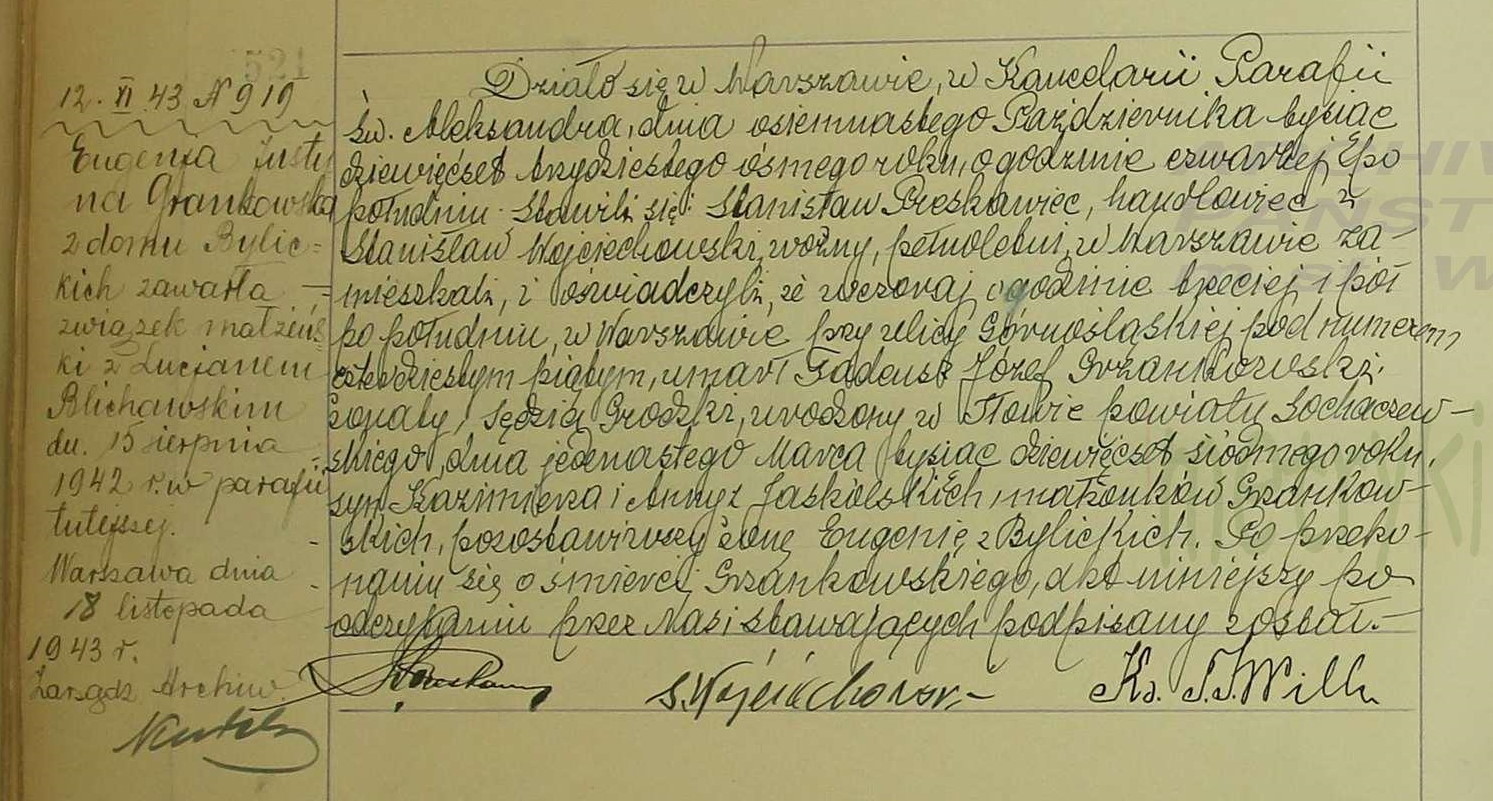 521
12. XI 43 N 919
Eugenja Justy
na Grankowska
z domu Bylic=
kich zawarła —
związek małżeńs
ki z Lucjanem
Blichawskim
dn. 15 sierpnia
1942 r. w parafii
tutejszej.
Warszawa dnia
18 listopada
1943 r.
Zarządz Archiw.
Działo się w Warszawie, w Kancelarii Parafii
św. Aleksandra, dnia osiemnastego Października tysiąc
dziewięćset trzydziestego ósmego roku, o godzinie czwartej po
południu. Stawili się: Stanisław Pieskawiec, handlowiec i
Stanisław Wojciechowski, woźny, pełnoletni, w Warszawie za-
mieszkali, i oświadczyli, że wczoraj o godzinie trzeciej i pół
po południu, w Warszawie przy ulicy Górnośląskiej pod numerem
czterdziestym piątym, umarł Tadeusz Józef Grzankowski,
żonaty, Sędzia Grodzki, urodzony w Iłowie powiatu Sochaczew-
skiego, dnia jedenastego Marca tysiąc dziewięćset siódmego roku,
syn Kazimierza i Anny z Jaskólskich, małżonków Grzankow-
skich, pozostawiwszy żonę Eugenię z Bylickich. Po przeko-
naniu się o śmierci Grzankowskiego, akt niniejszy po
odczytaniu przez Nas i stawających podpisany został.-
S. Wojciechowski
Ks. T. J. Will